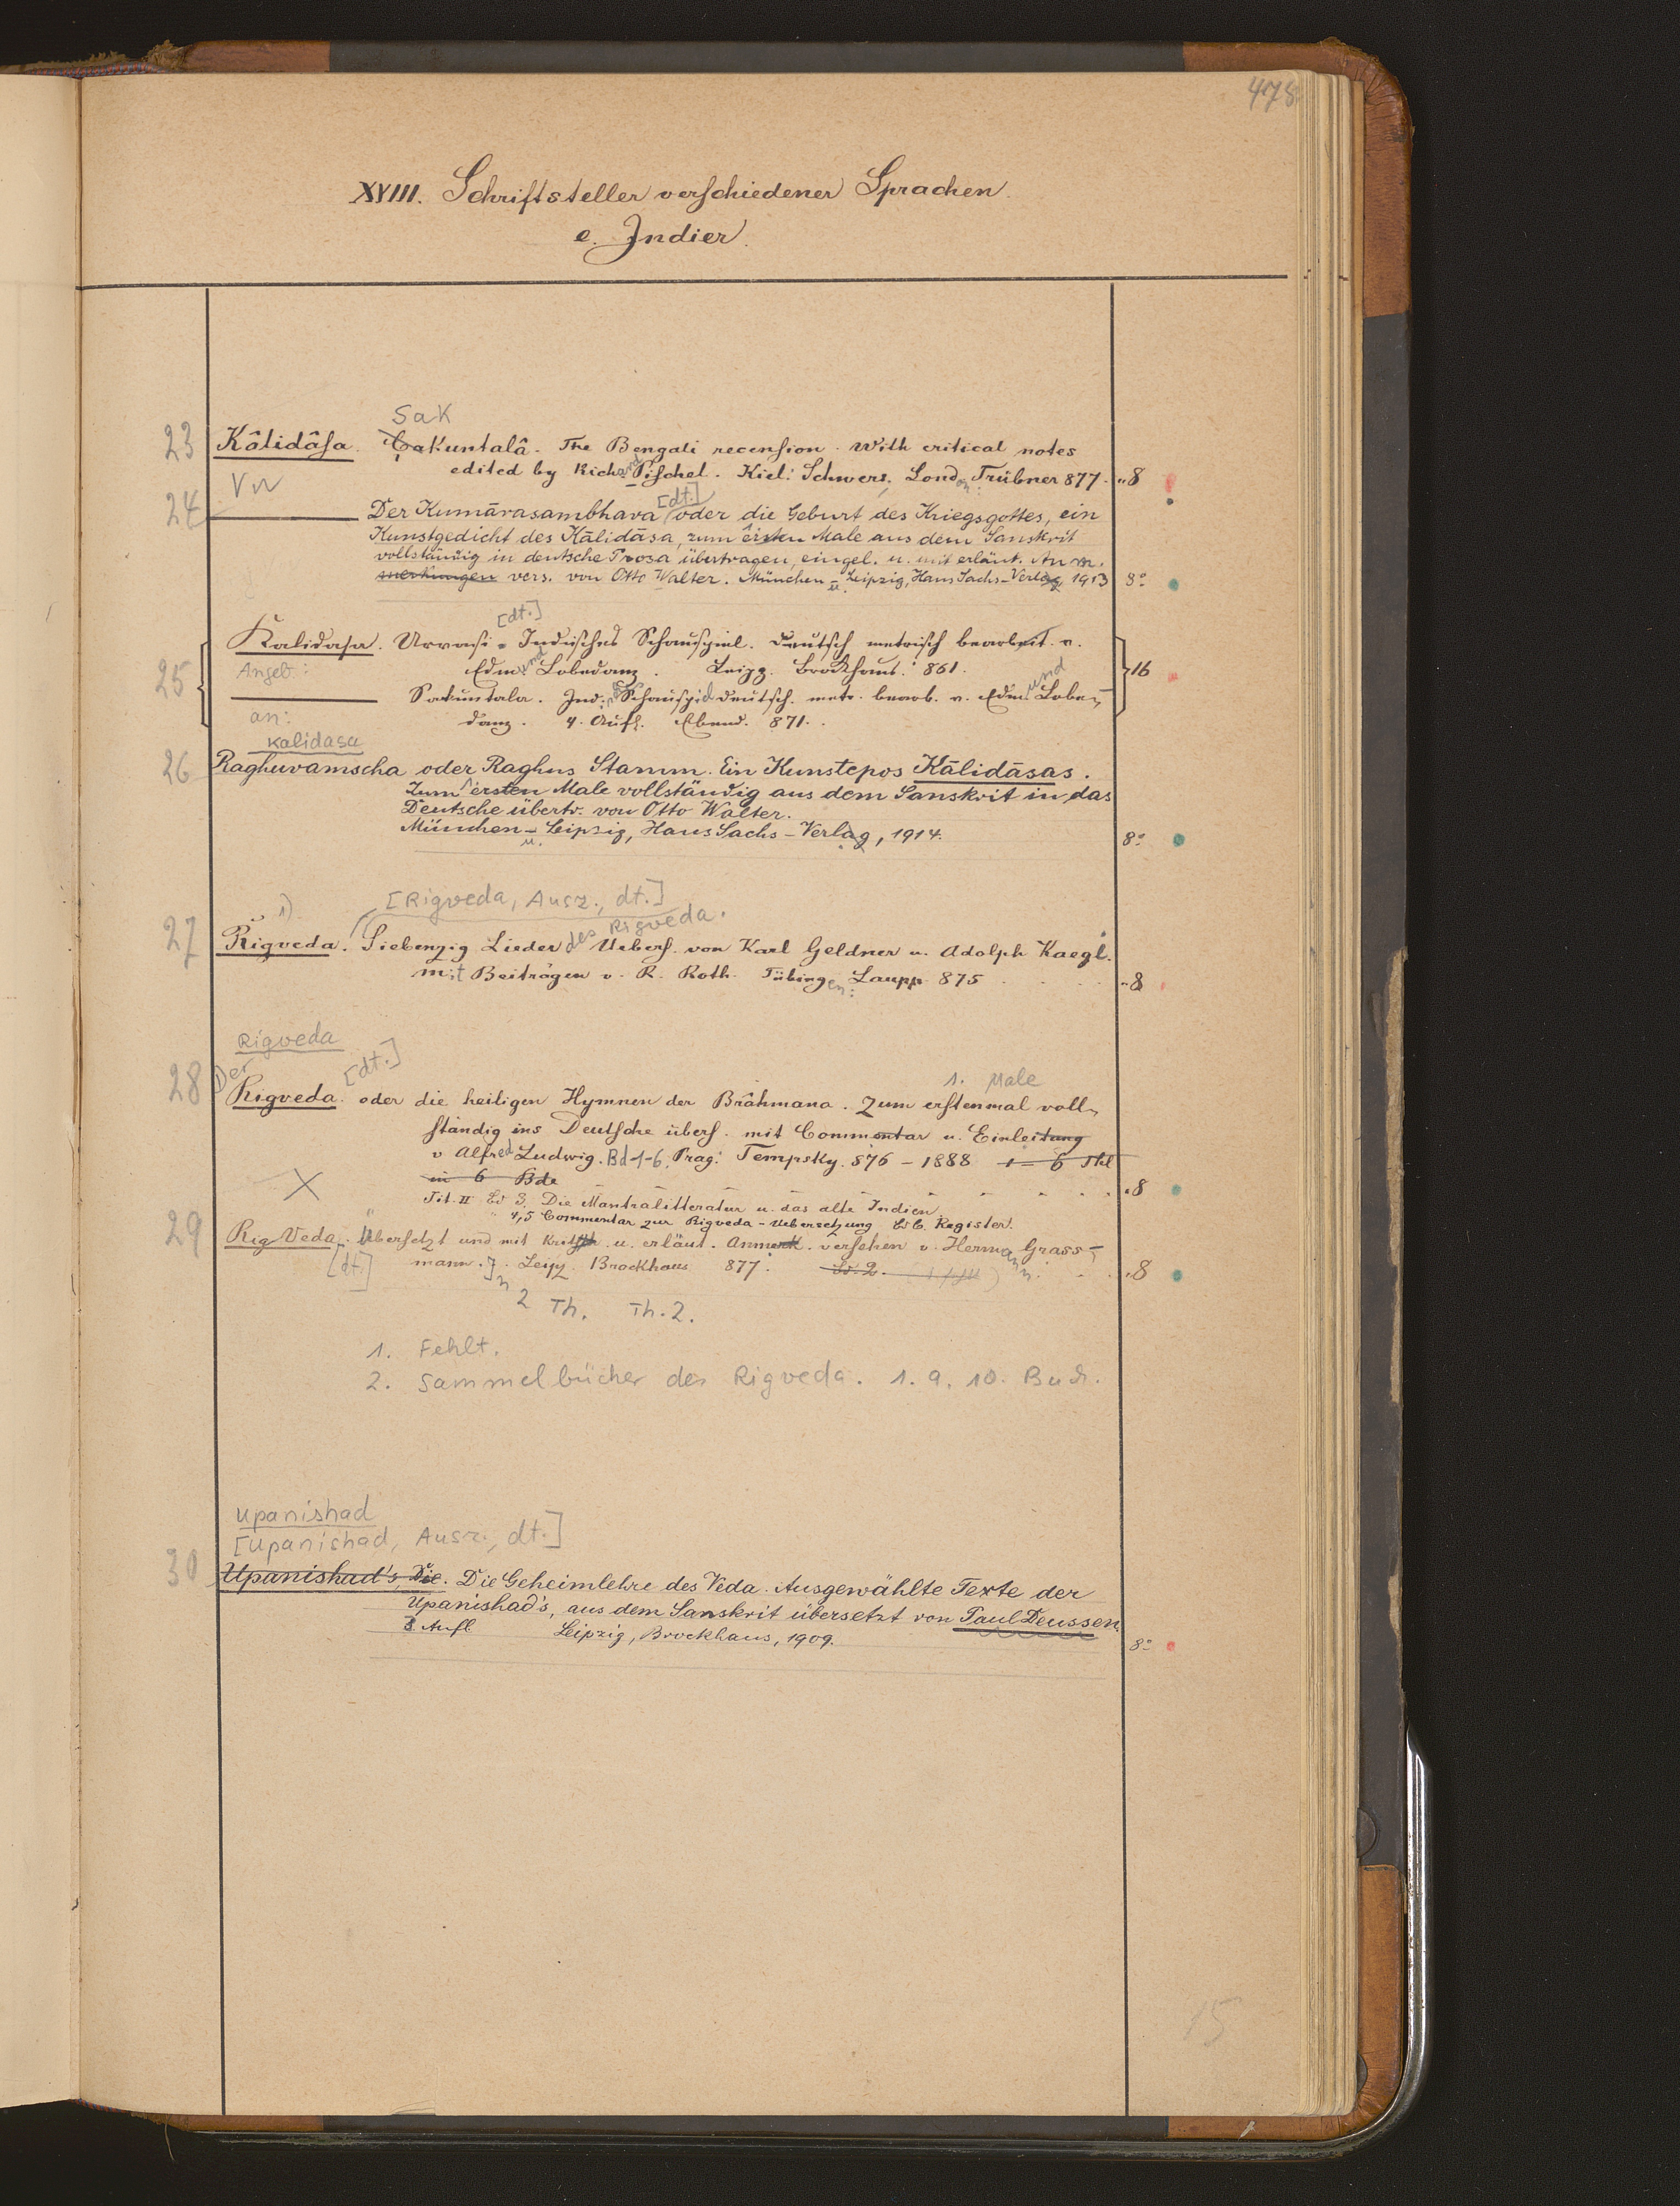 478
XVIII. Schriftsteller verschiedener Sprachen.
e. Indier.
Sak
23 Kâlidâsa. Çakuntalâ. The Bengali recension. With critical notes
edited by Richard Pischel. Kiel: Schwers, London: Trübner 877. „8
Vw
[dt.]
24 Der Kumārasambhava oder die Geburt des Kriegsgottes, ein
Kunstgedicht des Kālidāsa, zum ersten Male aus dem Sanskrit
vollständig in deutsche Prosa übertragen, eingel. u. mit erläut. Anm.
merkungen vers. von Otto Walter. München u. Leipzig, Hans Sachs-Verlag 1913 8°
[dt.]
Kalidasa. Urvasi. Indisches Schauspiel. Deutsch metrisch bearbeit. v.
Edmund Lobedanz. Leipz. Brockhaus. 861.
25 Angeb.: 16
Sakuntala. Ind. Schauspiel deutsch. metr. bearb. v. Edmund Lobe-
an: danz. 4. Aufl. Ebend. 871.
Kalidasa
26 Raghuvamscha oder Raghus Stamm. Ein Kunstepos Kālidāsas.
Zum ersten Male vollständig aus dem Sanskrit in das
Deutsche übertr. von Otto Walter.
München u. Leipzig, Hans Sachs-Verlag, 1914. 8°
[Rigveda, Ausz., dt.]
1) des Rigveda.
27 Rigveda. Siebenzig Lieder Uebers. von Karl Geldner u. Adolph Kaegi.
mit Beiträgen v. R. Roth. Tübingen: Laupp 875 „8
Rigveda
Der [dt.] 1. Male
28 Rigveda. oder die heiligen Hymnen der Brâhmana. Zum erstenmal voll-
ständig ins Deutsche übers. mit Commentar u. Einleitung
v Alfred Ludwig. Bd 1-6. Prag: Tempsky. 876 - 1888 1 - 6 Thl
in 6 Bde „8
Tit. II Bd 3. Die Mantralitteratur u. das alte Indien.
" 4,5 Commentar zur Rigveda-Uebersetzung Bd 6. Register.
29 Rig Veda. Übersetzt und mit krit. u. erläut. Anmerk. versehen v. Hermann Grass-
[dt.] mann. Leipz. Brockhaus 877. Bd. 2. „8
2 Th. Th. 2.
1. Fehlt.
2. Sammelbücher des Rigveda. 1. 9. 10. Buch.
Upanishad
[Upanishad, Ausz., dt.]
30 Upanishad's, Die. Die Geheimlehre des Veda. Ausgewählte Texte der
Upanishad's, aus dem Sanskrit übersetzt von Paul Deussen.
3. Aufl. Leipzig, Brockhaus, 1909. 8°
15